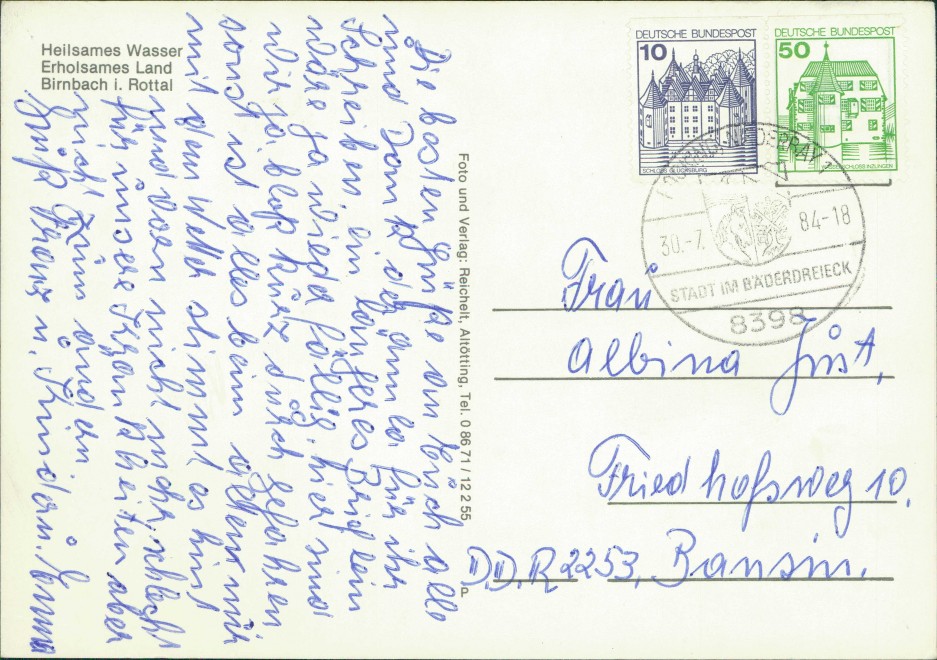 Heilsames Wasser
Erholsames Land
Birnbach i. Rottal
Die besten Grüße an Euch alle
und Dank der Anna für ihr
Schreiben. ein längeres Brieflein
wäre ja wieder fällig. hier sind
wir ja bloß kurz durch gefahren
sonst ist alles beim alten nur
mit dem Wetter stimmt es hint
und vorn nicht mehr, schlecht
für unsere Krankheiten aber
nicht zum ändern
Gruß Franz u. Anna
Foto und Verlag: Reichelt, Altötting, Tel. 0 86 71 / 12 2 55
DEUTSCHE BUNDESPOST
10
SCHLOSS GLÜCKSBURG
DEUTSCHE BUNDESPOST
50
WASSERSCHLOSS INZLINGEN
30.-7.
84-18
STADT IM BÄDERDREIECK
8398
Frau
Albina Just,
Friedhofsweg 10.
D.D.R 2253, Bansin.